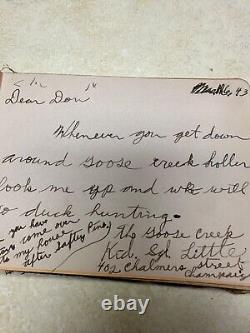 43
Dear Don
Whenever you get down
around Goose creek holler
look me up and we will
go duck hunting.
The Goose Creek
Kid. Little
402 Chalmers Street
Champaig
you have
come over
to my house
after